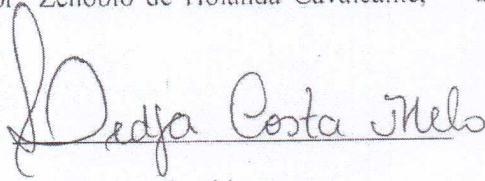 Zenóbio de Holanda Cavalcante,
Dedja Costa Melo